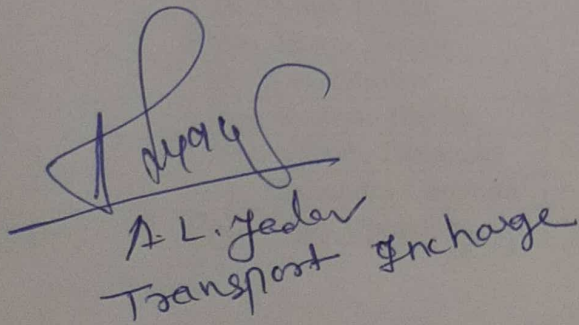 A. L. Yadav
Transport Incharge